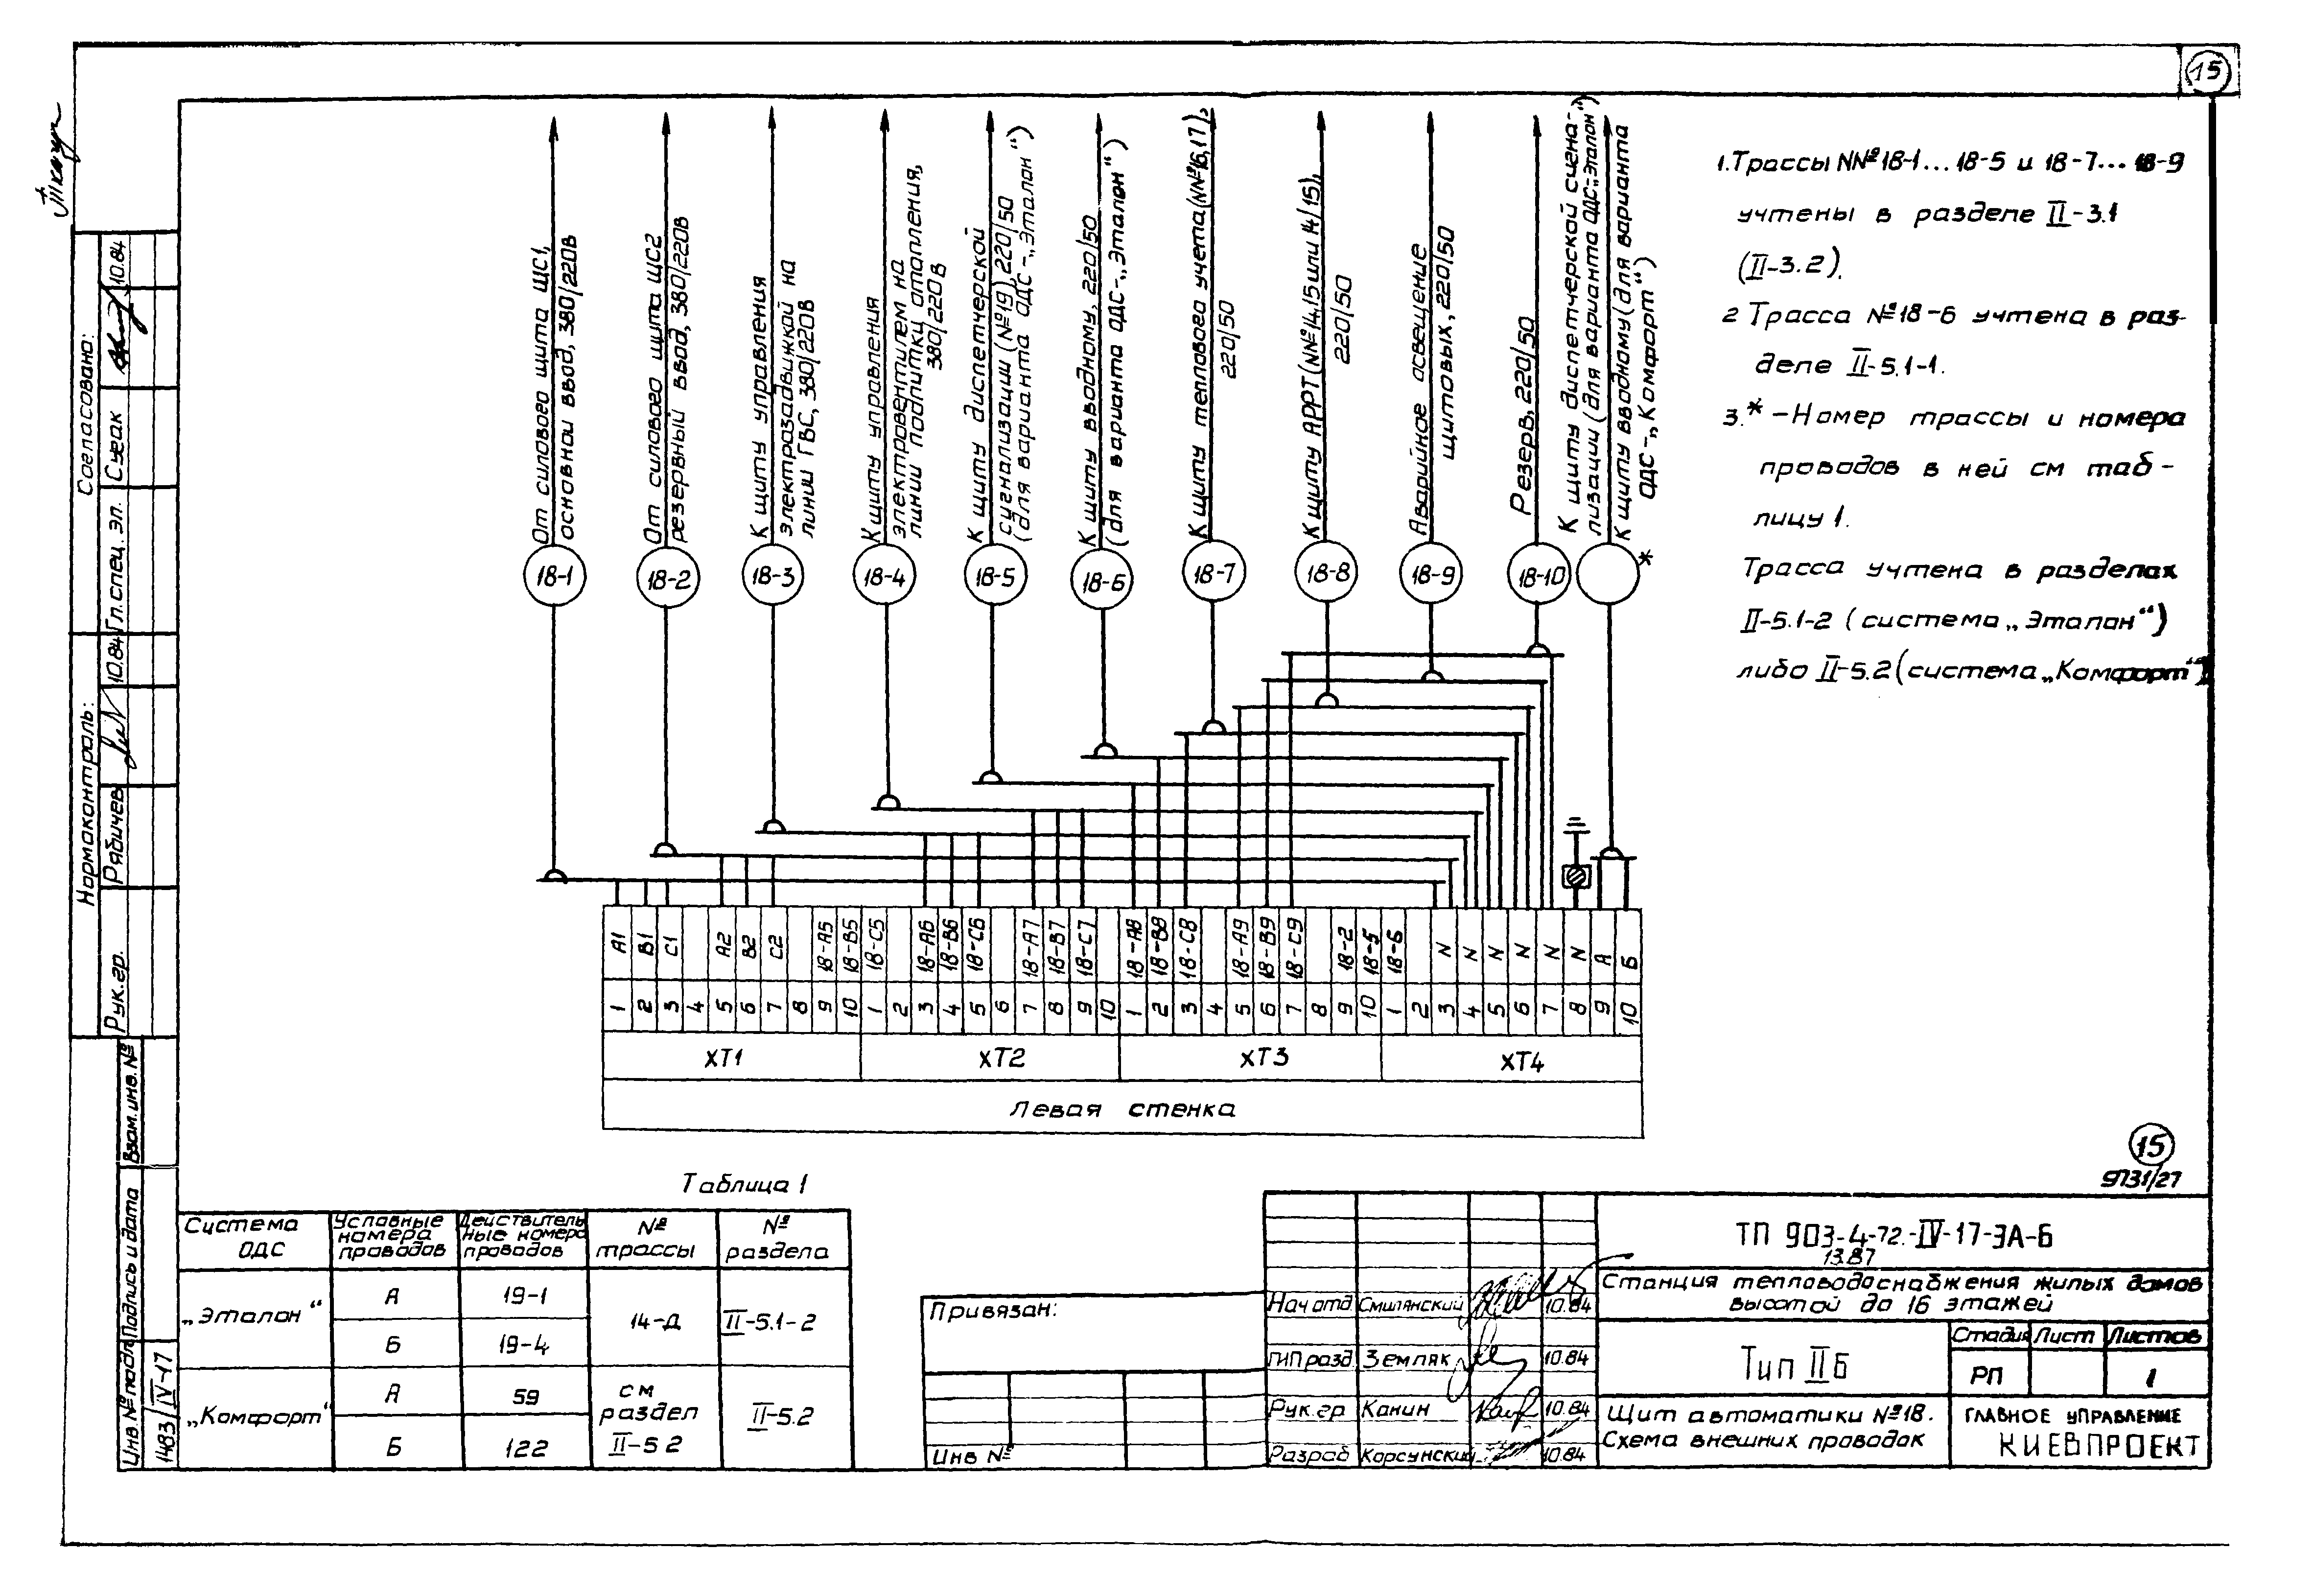 15
От силового щита ЩС1,
основной ввод, 380/220В
От силового щита ЩС2
резервный ввод, 380/220В
К щиту управления
электрозадвижкой на
линии ГВС, 380/220В
К щиту управления
электровентилем на
линии подпитки отопления,
380/220В
К щиту диспетчерской
сигнализации (№19), 220/50
(для варианта ОДС-„Эталон“)
К щиту вводному, 220/50
(для варианта ОДС-„Эталон“)
К щиту теплового учета (NN°16,17),
220/50
К щиту АРРТ (NN°14,15 или 14/15),
220/50
Аварийное освещение
щитовых, 220/50
Резерв, 220/50
К щиту диспетчерской сигна-
лизации (для варианта ОДС-„Эталон“)
К щиту вводному (для варианта
ОДС-„Комфорт“)
18-1
18-2
18-3
18-4
18-5
18-6
18-7
18-8
18-9
18-10
*
1. Трассы NN°18-1...18-5 и 18-7...18-9
учтены в разделе II-3.1
(II-3.2).
2 Трасса №18-6 учтена в раз-
деле II-5.1-1.
3.* -Номер трассы и номера
проводов в ней см таб-
лицу 1.
Трасса учтена в разделах
II-5.1-2 (система „Эталон“)
либо II-5.2 (система „Комфорт“)
A1 B1 C1 A2 B2 C2 18-A5 18-B5 18-C5 18-A6 18-B6 18-C6 18-A7 18-B7 18-C7 18-A8 18-B8 18-C8 18-A9 18-B9 18-C9 18-2 18-5 18-6 N N N N N N А Б
1 2 3 4 5 6 7 8 9 10 1 2 3 4 5 6 7 8 9 10 1 2 3 4 5 6 7 8 9 10 1 2 3 4 5 6 7 8 9 10
XT1 XT2 XT3 XT4
Левая стенка
15
9731/27
Таблица 1
Система
ОДС
Условные
номера
проводов
Действитель
ные номера
проводов
№
трассы
№
раздела
„Эталон“
А 19-1
Б 19-4
14-Д
II-5.1-2
„Комфорт“
А 59
Б 122
см
раздел
II-5 2
II-5.2
Привязан:
Инв №
Нач отд Смилянский 10.84
ГИП разд. Земляк 10.84
Рук.гр Канин 10.84
Разраб Корсунский 10.84
ТП 903-4-72.-IV-17-ЭА-Б
13.87
Станция тепловодоснабжения жилых домов
высотой до 16 этажей
Тип IIБ
Стадия Лист Листов
РП 1
Щит автоматики №18.
Схема внешних проводок
ГЛАВНОЕ УПРАВЛЕНИЕ
КИЕВПРОЕКТ
Согласовано:
Гл.спец. эл. Сугак 10.84
Нормоконтроль:
Рук.гр. Рябичев 10.84
Взам.инв.№
Подпись и дата
Инв.№ подл
1483/IV-17